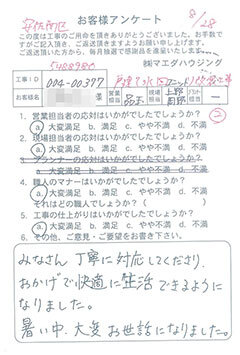 安佐南区
お客様アンケート
8/28
この度は工事のご用命を頂きありがとうございます。お手数で
すがご記入頂き、ご返送頂きますようお願い申し上げます。
ご返送頂いた方から、毎月抽選で感謝品を進呈いたします。
㈱マエダハウジング
工事ID
004-00377
お客様名
営業担当
現場担当
1. 営業担当者の応対はいかがでしたでしょうか?
a 大変満足 b. 満足 c. やや不満 d. 不満
2. 現場担当者の応対はいかがでしたでしょうか?
a 大変満足 b. 満足 c. やや不満 d. 不満
3. プランナーの応対はいかがでしたでしょうか?
a. 大変満足 b. 満足 c. やや不満 d. 不満
4. 職人のマナーはいかがでしたでしょうか?
a 大変満足 b. 満足 c. やや不満 d. 不満
それはどの職人でしょうか?( )
5. 工事の仕上がりはいかがでしたでしょうか?
a 大変満足 b. 満足 c. やや不満 d. 不満
6. その他、ご意見・ご要望をお書き下さい。
みなさん 丁寧に対応してくださり、
おかげで快適に生活できるように
なりました。
暑い中、大変お世話になりました。